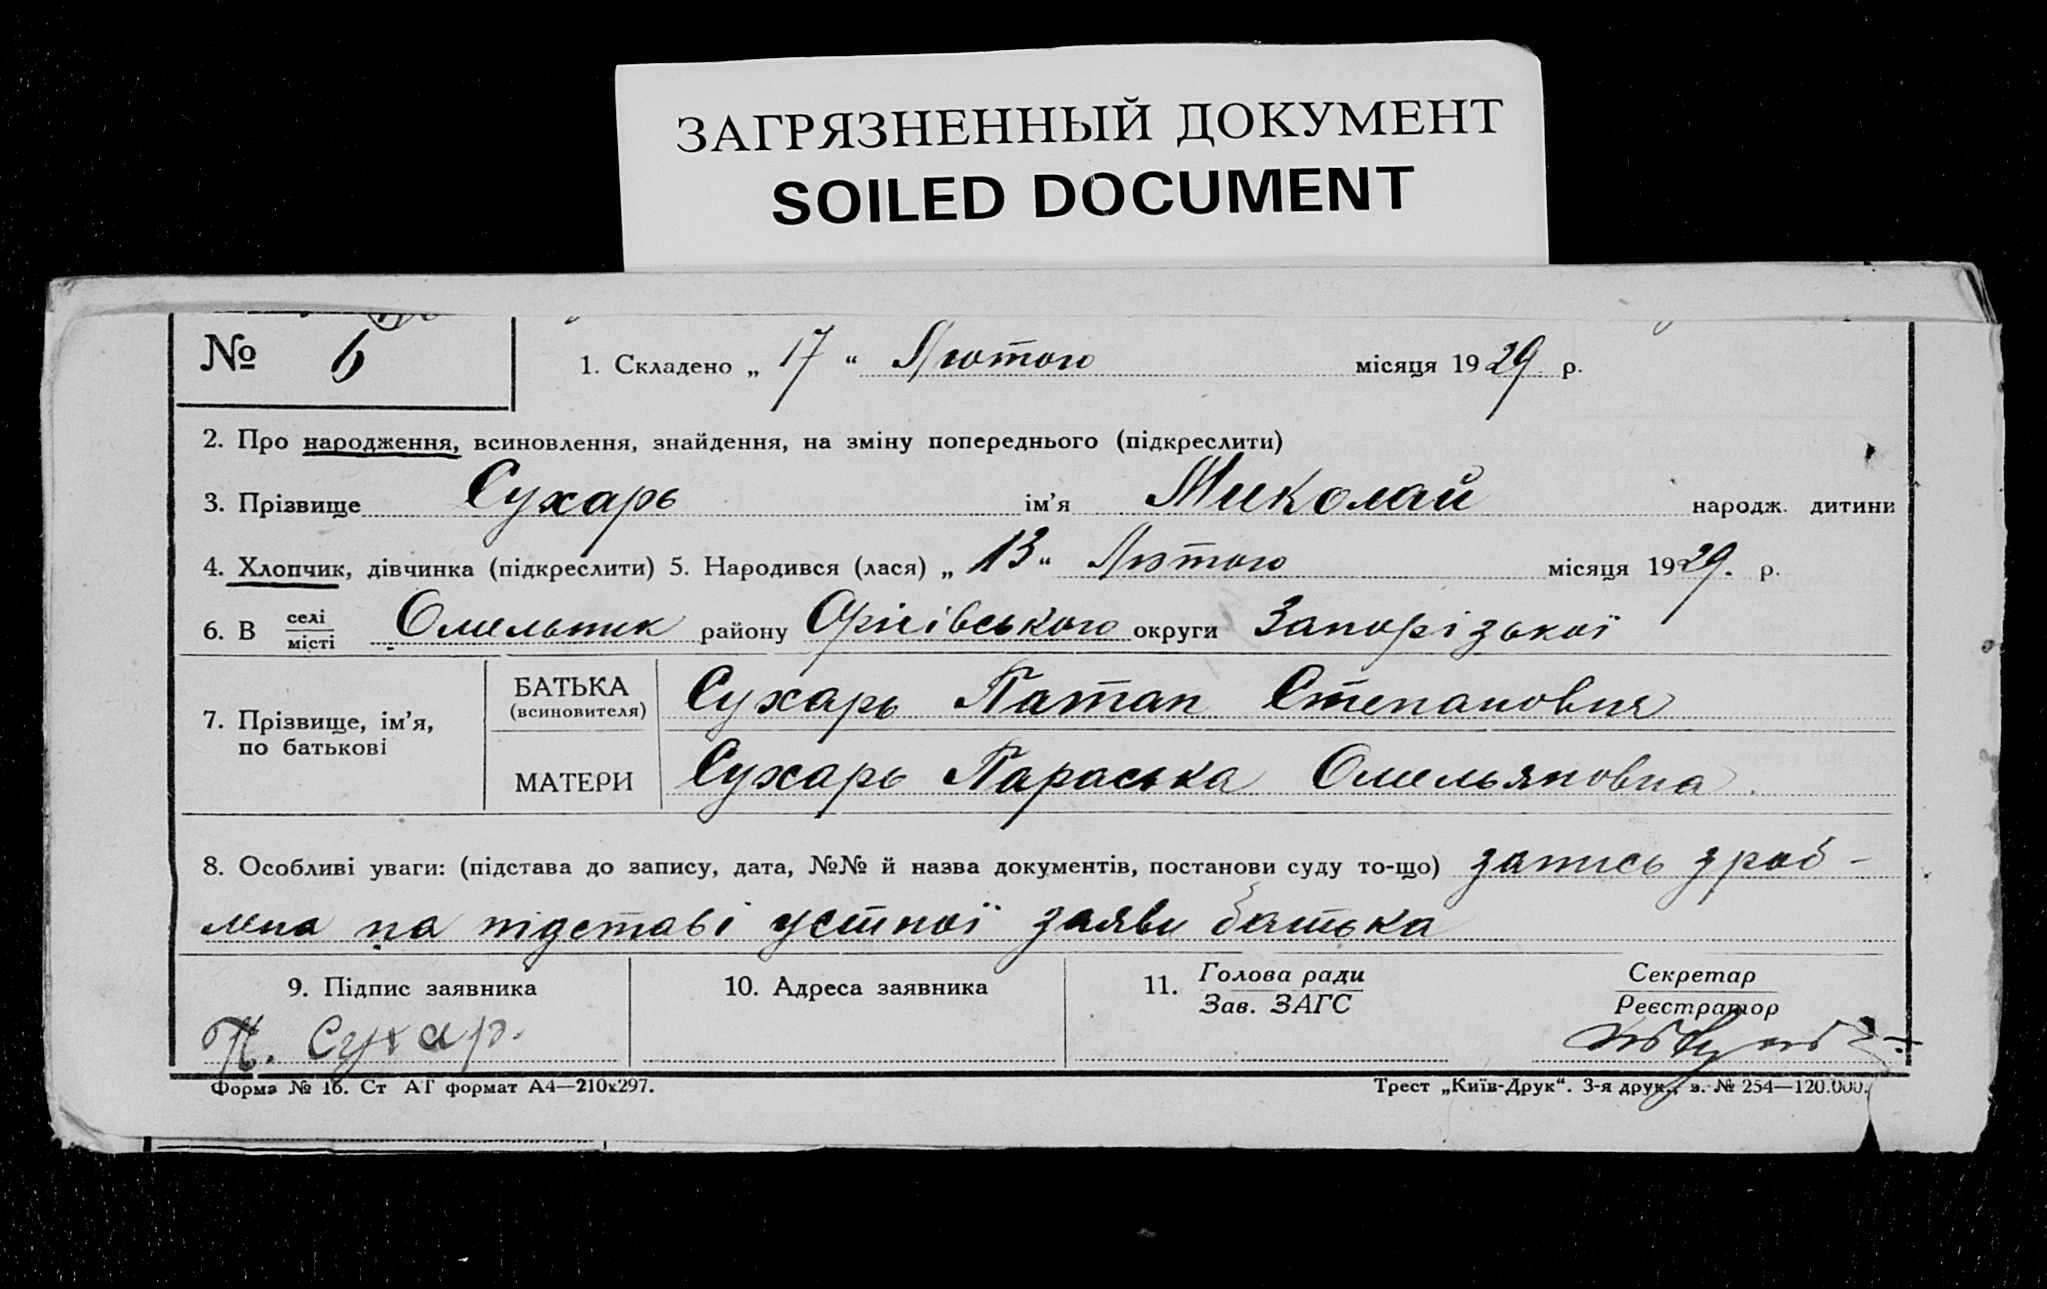 ЗАГРЯЗНЕННЫЙ ДОКУМЕНТ
SOILED DOCUMENT
№ 6 1. Складено „ 17 “ Лютого місяця 1929 р.
2. Про народження, всиновлення, знайдення, на зміну попереднього (підкреслити)
3. Прізвище Сухарь ім’я Миколай народж. дитини
4. Хлопчик, дівчинка (підкреслити) 5. Народився (лася) „ 13 “ Лютого місяця 1929. р.
6. В селі
місті Омельник району Оріхівського округи Запорізької
7. Прізвище, ім’я,
по батькові
БАТЬКА
(всиновителя)
Сухарь Патап Степанович
МАТЕРИ Сухарь Параська Омельяновна.
8. Особливі уваги: (підстава до запису, дата, №№ й назва документів, постанови суду то-що) запись зроб-
лена на підставі устної заяви батька
9. Підпис заявника 10. Адреса заявника 11. Голова ради
Зав. ЗАГС
Секретар
Реєстратор
П. Сухар.
Форма № 16. Ст АТ формат А4—210х297. Трест „Київ-Друк“. 3-я друк., з. № 254—120.000.